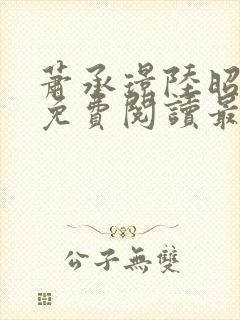 蕭承璟陸昭
免費閱讀最
公子無雙